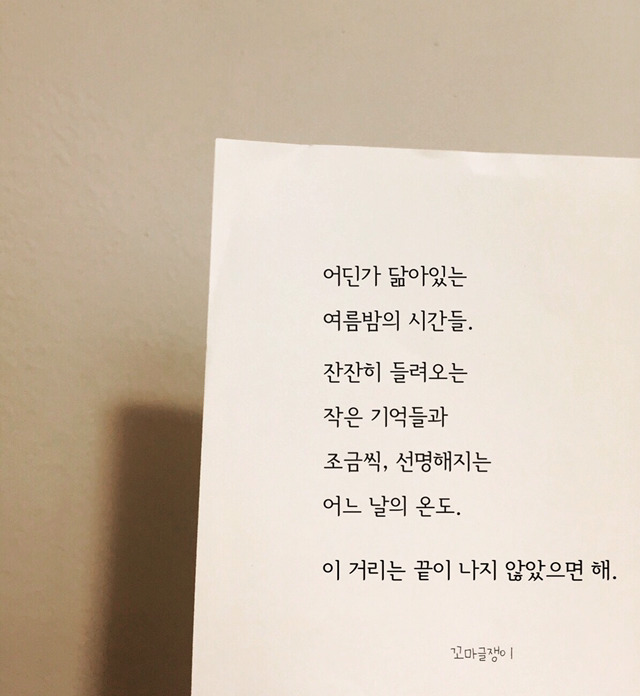 어딘가 닮아있는
여름밤의 시간들.
잔잔히 들려오는
작은 기억들과
조금씩, 선명해지는
어느 날의 온도.
이 거리는 끝이 나지 않았으면 해.
꼬마글쟁이